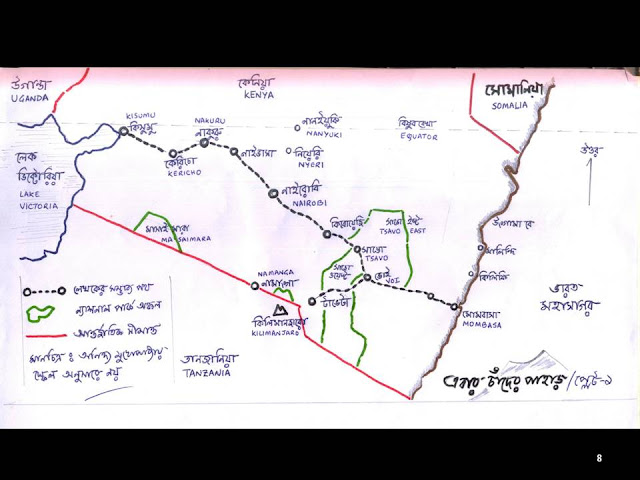 উগান্ডা
UGANDA
কেনিয়া
KENYA
সোমালিয়া
SOMALIA
KISUMU
কিসুমু
NAKURU
নাকুরু
নানইয়ুকি
NANYUKI
বিষুবরেখা
EQUATOR
নাইভাসা
নিয়েরি
NYERI
কেরিচো
KERICHO
উত্তর
লেক
ভিক্টোরিয়া
LAKE
VICTORIA
নাইরোবি
NAIROBI
মাসাই মারা
MASAIMARA
সাভো ইস্ট
TSAVO EAST
সাভো
TSAVO
সাভো
ওয়েস্ট
ভোই
VOI
মালিন্দি
কিলিফি
ভারত
মহাসাগর
NAMANGA
নামাঙ্গা
টাভেটা
মোমবাসা
MOMBASA
কিলিমানজারো
KILIMANJARO
তানজানিয়া
TANZANIA
লেখকের সম্ভাব্য পথ
ন্যাশনাল পার্ক অঞ্চল
আন্তর্জাতিক সীমান্ত
মানচিত্র : অনিন্দ্য মুখোপাধ্যায়
স্কেল অনুসারে নয়
এবার চাঁদের পাহাড় / প্লেট-১
8